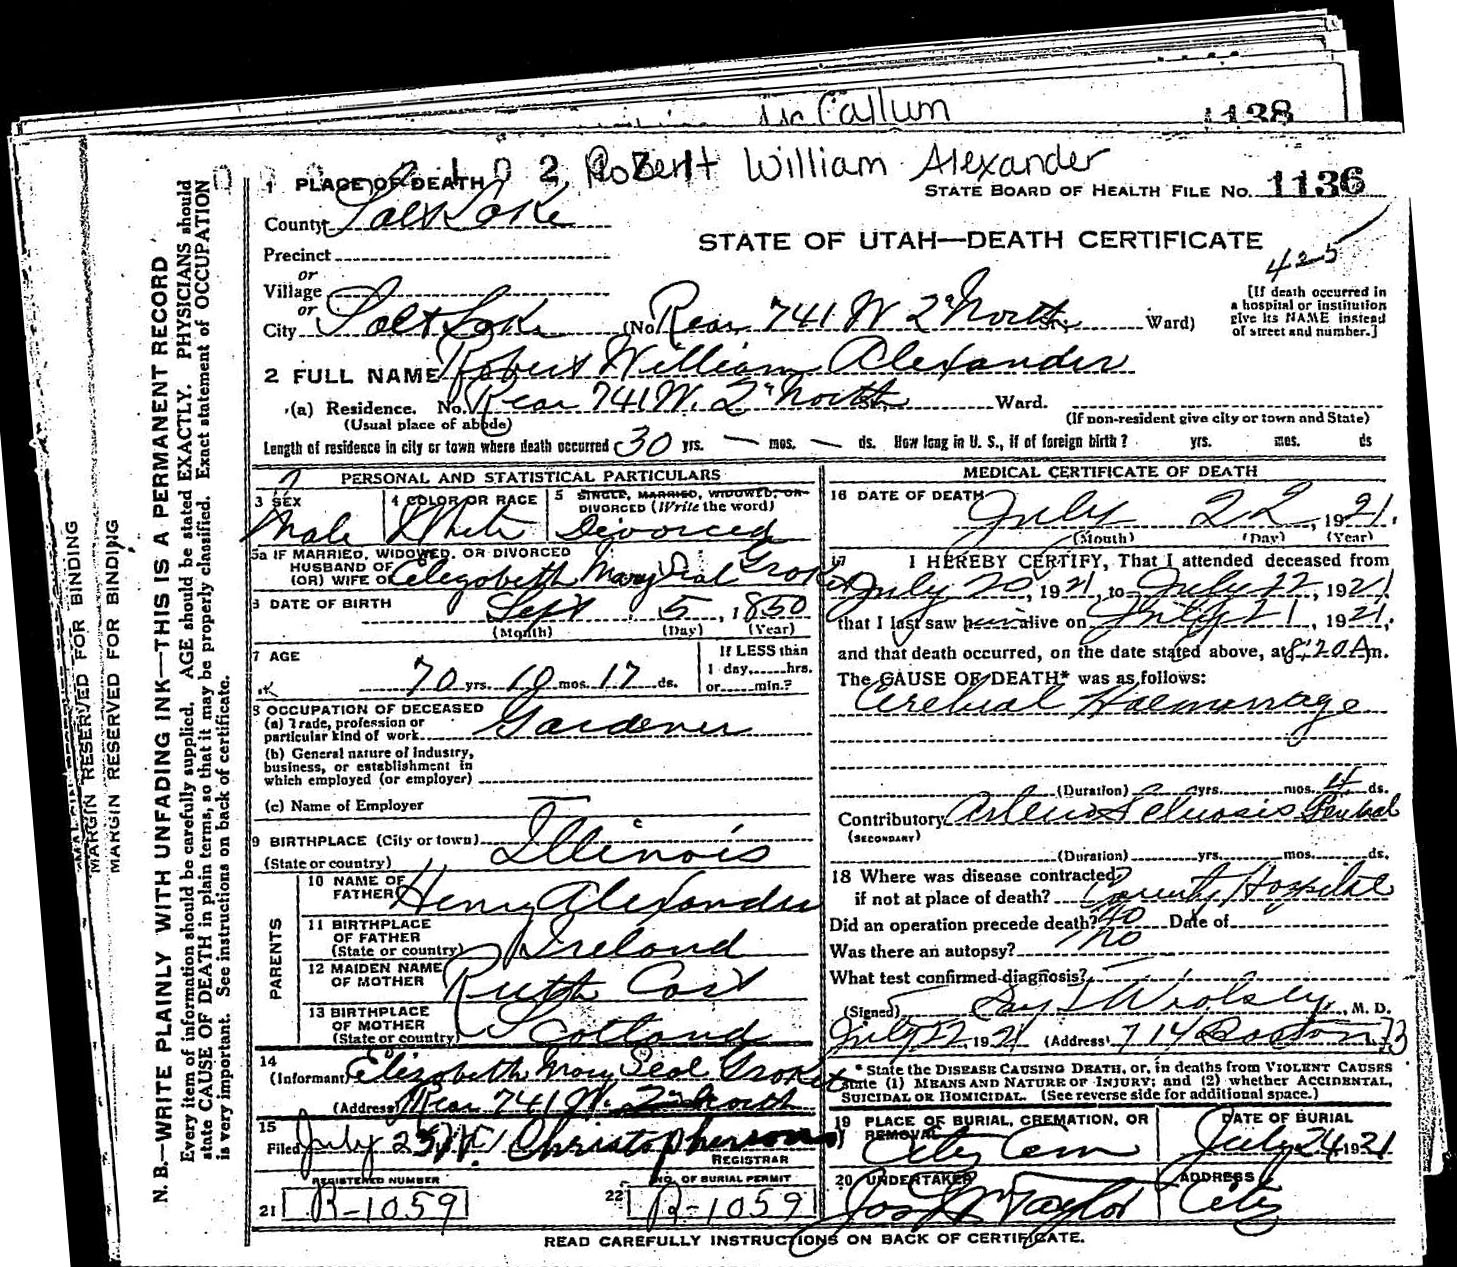 Mc Callum
1138
Robert William Alexander
1 PLACE OF DEATH
STATE BOARD OF HEALTH FILE No. 1136
County Salt Lake
STATE OF UTAH—DEATH CERTIFICATE
Precinct
425
or
Village
or
City Salt Lake (No. Rear 741 W 2d North St., Ward)
[If death occurred in
a hospital or institution
give its NAME instead
of street and number.]
2 FULL NAME Robert William Alexander
(a) Residence. No. Rear 741 W. 2d North St., Ward.
(Usual place of abode) (If non-resident give city or town and State)
Length of residence in city or town where death occurred 30 yrs. — mos. — ds. How long in U. S., if of foreign birth? yrs. mos. ds
PERSONAL AND STATISTICAL PARTICULARS
3 SEX
Male
4 COLOR OR RACE
White
5 SINGLE, MARRIED, WIDOWED, OR
DIVORCED (Write the word)
Divorced
5a IF MARRIED, WIDOWED, OR DIVORCED
HUSBAND OF
(OR) WIFE OF Elizabeth Mary Seal
6 DATE OF BIRTH Sept 5, 1850
(Month) (Day) (Year)
7 AGE
70 yrs. 10 mos. 17 ds.
If LESS than
1 day, hrs.
or min.?
8 OCCUPATION OF DECEASED
(a) Trade, profession or
particular kind of work Gardener
(b) General nature of industry,
business, or establishment in
which employed (or employer)
(c) Name of Employer —
9 BIRTHPLACE (City or town)
(State or country) Illinois
PARENTS
10 NAME OF
FATHER Henry Alexander
11 BIRTHPLACE
OF FATHER
(State or country) Ireland
12 MAIDEN NAME
OF MOTHER Ruth
13 BIRTHPLACE
OF MOTHER
(State or country) Scotland
14
(Informant) Elizabeth Mary Seal
(Address) Rear 741 W. 2d North
15
Filed July 23 Christopherson
REGISTRAR
REGISTERED NUMBER
21 R-1059
NO. OF BURIAL PERMIT
22 R-1059
MEDICAL CERTIFICATE OF DEATH
16 DATE OF DEATH
July 22, 1921.
(Month) (Day) (Year)
17 I HEREBY CERTIFY, That I attended deceased from
July 20, 1921, to July 22, 1921
that I last saw him alive on July 21, 1921.
and that death occurred, on the date stated above, at 8:20 A m.
The CAUSE OF DEATH* was as follows:
Cerebral Haemorrage
(Duration) yrs. mos. ds.
Contributory Arterio Sclerosis General
(SECONDARY)
(Duration) yrs. mos. ds.
18 Where was disease contracted
if not at place of death? County Hospital
Did an operation precede death? No Date of
Was there an autopsy? No
What test confirmed diagnosis? —
(Signed) Woolsey, M. D.
July 22, 1921 (Address) 714 Boston
* State the DISEASE CAUSING DEATH, or, in deaths from VIOLENT CAUSES
state (1) MEANS AND NATURE OF INJURY; and (2) whether ACCIDENTAL,
SUICIDAL OR HOMICIDAL. (See reverse side for additional space.)
19 PLACE OF BURIAL, CREMATION, OR
REMOVAL
City Cem
DATE OF BURIAL
July 24 1921
20 UNDERTAKER
Jos Wm Taylor
ADDRESS
City
READ CAREFULLY INSTRUCTIONS ON BACK OF CERTIFICATE.
MARGIN RESERVED FOR BINDING
MARGIN RESERVED FOR BINDING
N. B.—WRITE PLAINLY WITH UNFADING INK—THIS IS A PERMANENT RECORD
Every item of information should be carefully supplied. AGE should be stated EXACTLY. PHYSICIANS should
state CAUSE OF DEATH in plain terms, so that it may be properly classified. Exact statement of OCCUPATION
is very important. See instructions on back of certificate.